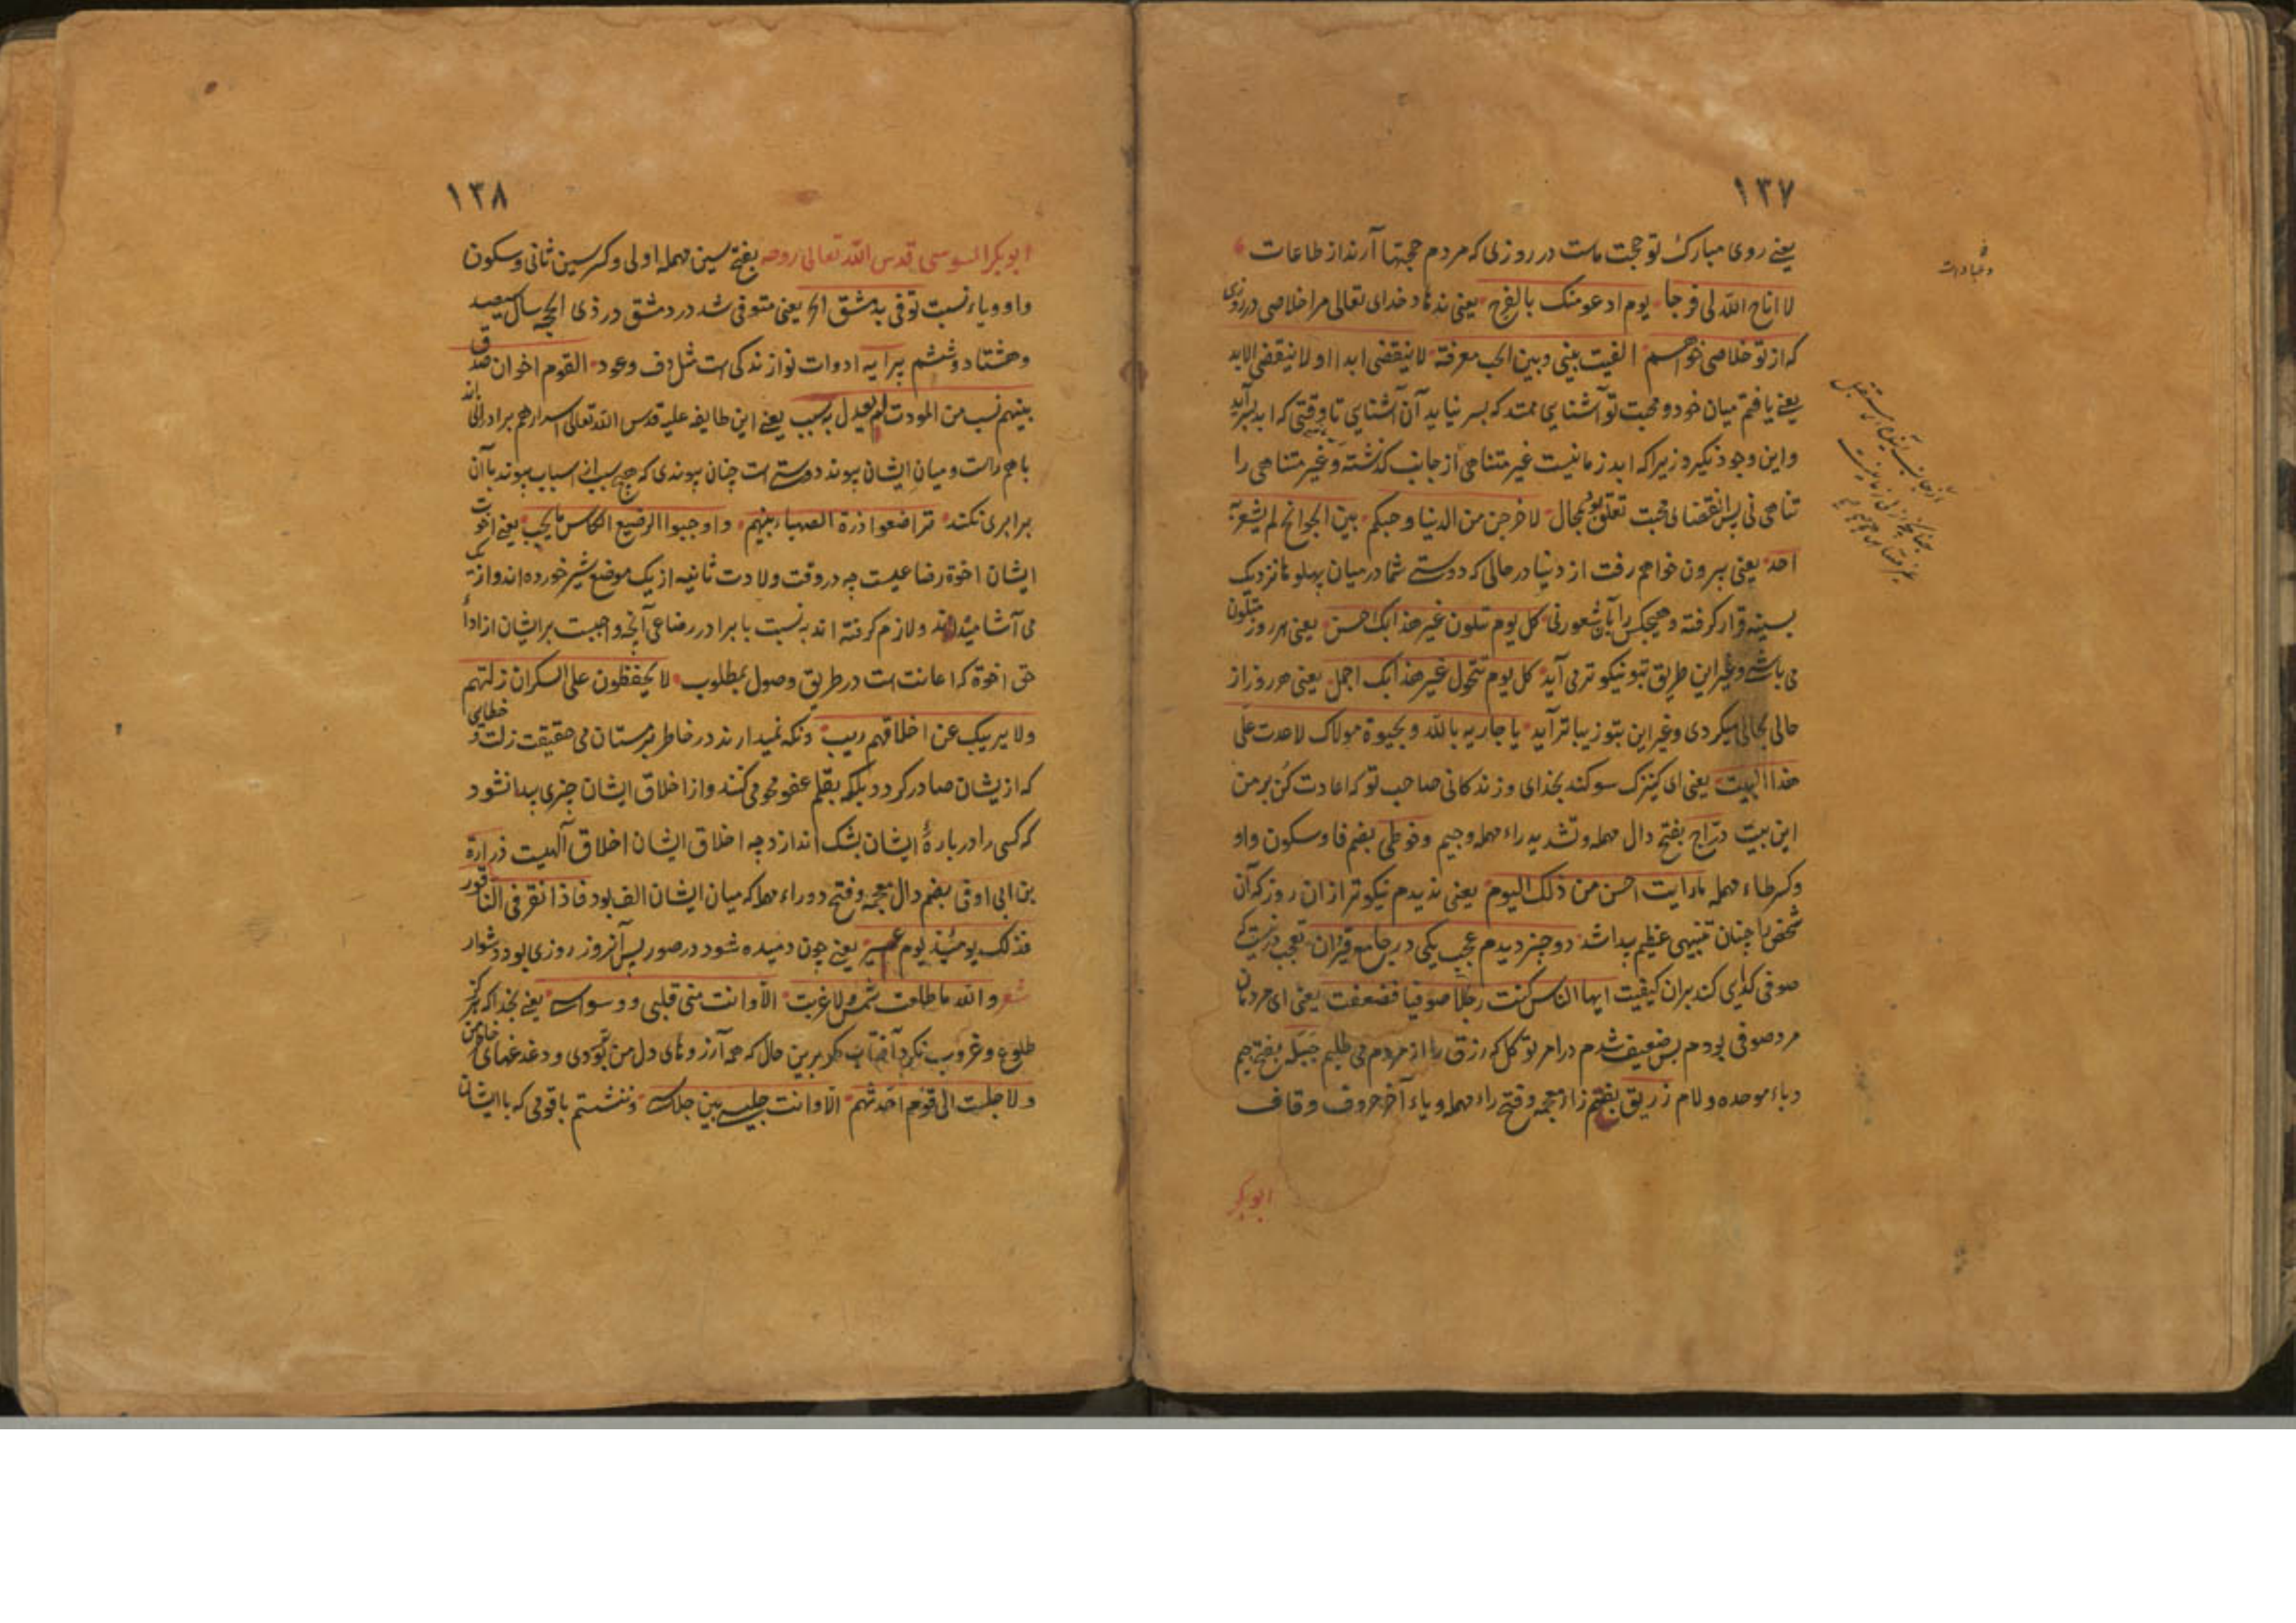 ١٣٧
یعنے روی مبارک تو حجت ماست در روزی که مردم حجتها آرند از طاعات
و عبادات
لا اتاح الله لی فرجا یوم ادعو منک بالفرج یعنی ندهاد خدای تعالی مرا خلاصی در روزی
که از تو خلاصی خواهم الفیت بینی و بین الحب معرفة لا ینقضی ابدا او لا ینقضی الابد
یعنے یافتم میان خود و محبت تو آشنایی ممتد که بسر نیاید آن آشنایی تا وقتی که ابد بسر آید
و این وجود نگیرد زیرا که ابد زمانیست غیر متناهی از جانب گذشته و غیر متناهی را
تناهی نی پس انقضای محبت تعلق بود بمحال لاخرجن من الدنیا و حبکم بین الجوانح لم یشعر به
احد یعنی بیرون خواهم رفت از دنیا در حالی که دوستے شما در میان پهلوها نزدیک
بسینه قرار گرفته و هیچکس را بآن شعور نی کل یوم تتلون غیر هذا بک احسن یعنی هر روز متلون
می باشے و غیر این طریق بتو نیکوتر می آید کل یوم تتحول غیر هذا بک اجمل یعنی هر روز از
حالی بحالی میگردی و غیر این بتو زیباتر آید یا جاریه بالله و بحیوة مولاک لا عدت علی
هذا البیت یعنی ای کنیزک سوگند بخدای و زندگانی صاحب تو که اعادت کن بر من
این بیت درّاج بفتح دال مهمله و تشدید راء مهمله و جیم و فوطی بضم فا و سکون واو
و کسر طاء مهمله ما رایت احسن من ذلک الیوم یعنی ندیدم نیکوتر از ان روز که آن
شخص را چنان تنبیهی عظیم پیدا شد دو چیز دیدم عجب یکی در جامع قیروان تعجب درینست که
صوفی گدایی کند بران کیفیت ایها الناس کنت رجلا صوفیا فضعفت یعنی ای مردمان
مرد صوفی بودم پس ضعیف شدم در امر توکل که رزق را از مردم می طلبم جبله بفتح جیم
و باء موحده و لام زریق بضم زاء معجمه و فتح راء مهمله و یاء آخر حروف و قاف
ابوبکر
١٣٨
ابوبکر السوسی قدس الله تعالی روحه بفتح سین مهمله اولی و کسر سین ثانی و سکون
واو و یاء نسبت توفی بدمشق الخ یعنی متوفی شد در دمشق در ذی الحجه سال سیصد
و هشتاد و ششم پیرایه ادوات نوازندگی است مثل دف و عود القوم اخوان صدق
بینهم نسب من المودت لم یعدل به سبب یعنے این طایفه علیه قدس الله تعالی اسرارهم برادرانی اند
باهم راست و میان ایشان پیوند دوستے است چنان پیوندی که هیچ سبب از اسباب پیوند با آن
برابری نکند تراضعوا درة الصهباء بینهم و اوجبوا لرضیع الکاس ما یجب یعنے اخوت
ایشان اخوة رضاعیست چه در وقت ولادت ثانیه از یک موضع شیر خورده اند و از یک
می آشامیده اند و لازم گرفته اند به نسبت با برادر رضاعی آنچه واجبست بر ایشان از اداء
حق اخوة که اعانت است در طریق وصول بمطلوب لا یحفظون علی السکران زلتهم
ولا یریبک عن اخلاقهم ریب و نگه نمیدارند در خاطر بر مستان می حقیقت زلت و خطایی
که ازیشان صادر گردد بلکه بقلم عفو محو می کنند و از اخلاق ایشان چیزی پیدا نشود
که کسی را در بارهٔ ایشان بشک اندازد چه اخلاق ایشان اخلاق آلهیت زرارة
بن ابی اوفی بضم دال معجمه و فتح دو راء مهمله که میان ایشان الف بود فاذا نقر فی الناقور
فذلک یومئذ یوم عسیر یعنے چون دمیده شود در صور پس آنروز روزی بود دشوار
شعر والله ما طلعت شمس ولا غربت الا و انت منی قلبی و وسواسی یعنے بخدا که هرگز
طلوع و غروب نکرد آفتاب مگر برین حال که همه آرزوهای دل من تو بودی و دغدغهای خاطر من
ولا جلست الی قوم احدثهم الا و انت جلیسی بین جلاسی و ننشستم با قومی که با ایشان